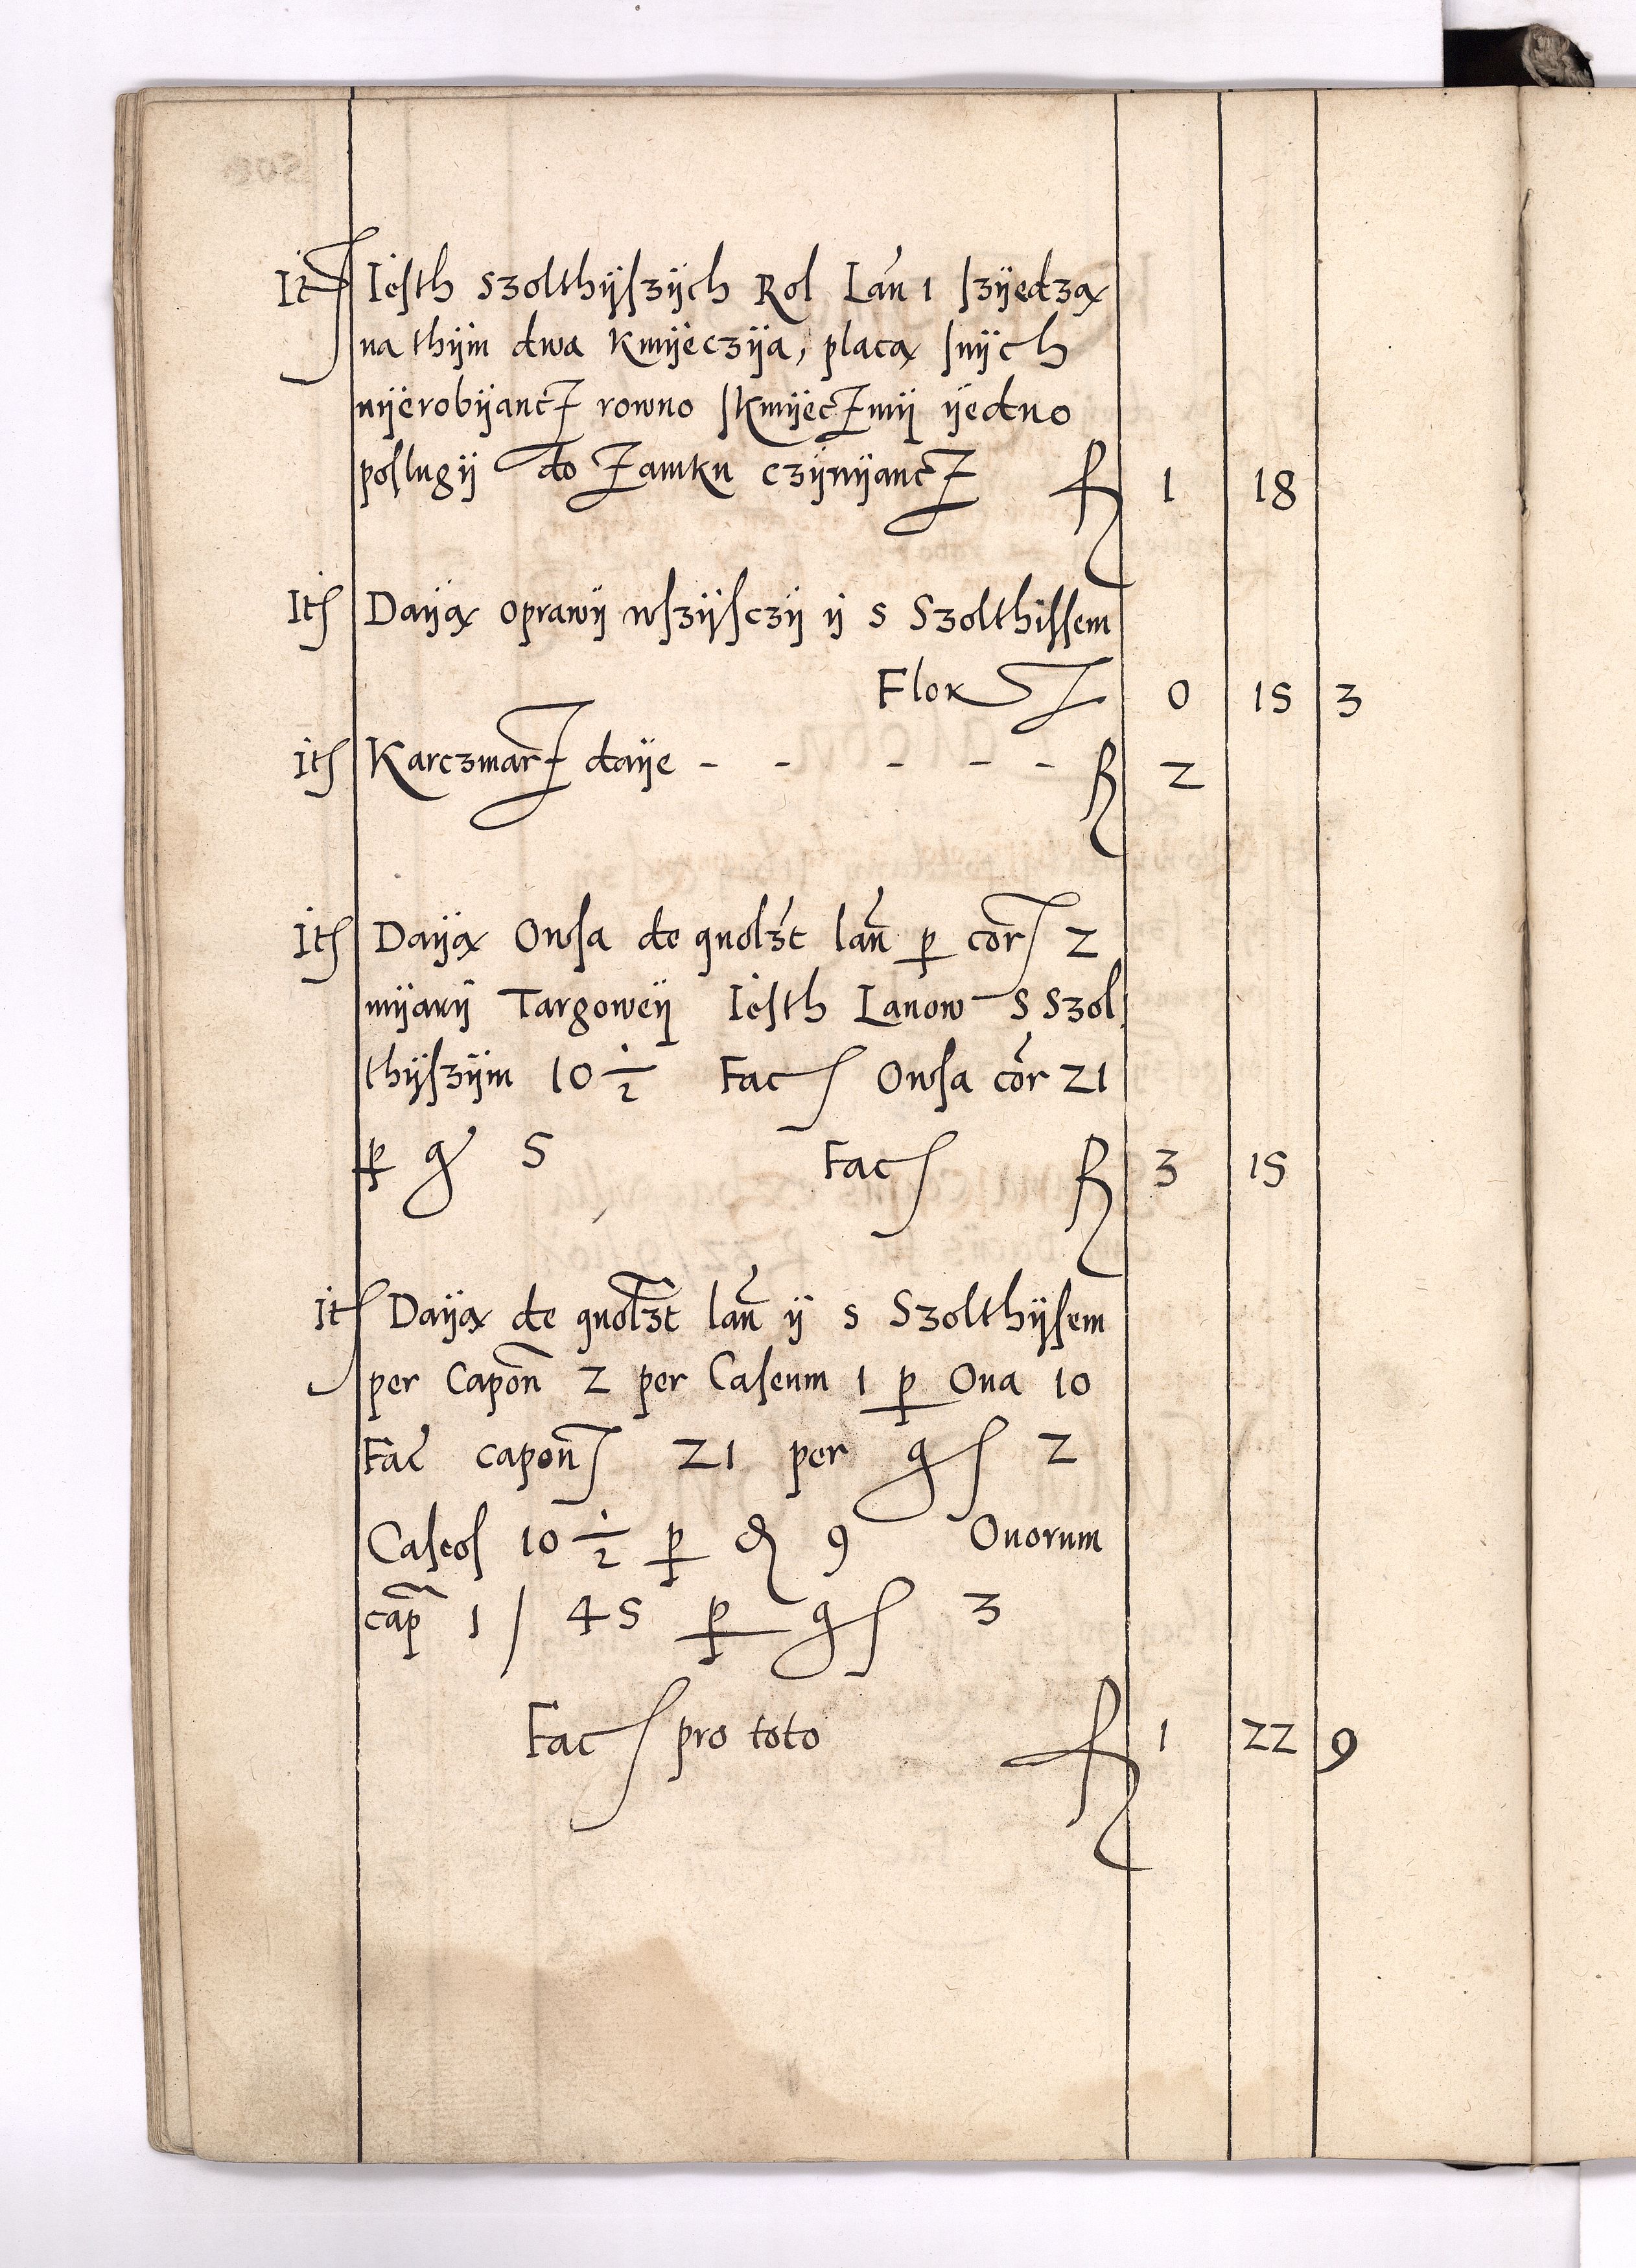 It Iesth Szolthyszych Rol Lan 1 szyedzą
na thym dwa Kmyeczya, placą snych
nyerobyancz rowno skmyeczmy yedno
poslugy do zamku czynyancz fl 1 18
It Dayą oprawy wszysczy y s Szolthissem
Flor 0 15 3
It Karczmarz daye - - - - - fl 2
It Dayą Owsa de quolzt lan p cor 2
myary Targowey Iesth Lanow s Szol
thyszym 10 1/2 Fac Owsa cor 21
p g 5 Fac fl 3 15
It Dayą de quolzt lan y s Szolthysem
per Capon 2 per Caseum 1 p Oua 10
Fac capon 21 per g 2
Caseos 10 1/2 p d 9 Ouorum
cap 1 / 45 p g 3
Fac pro toto fl 1 22 9